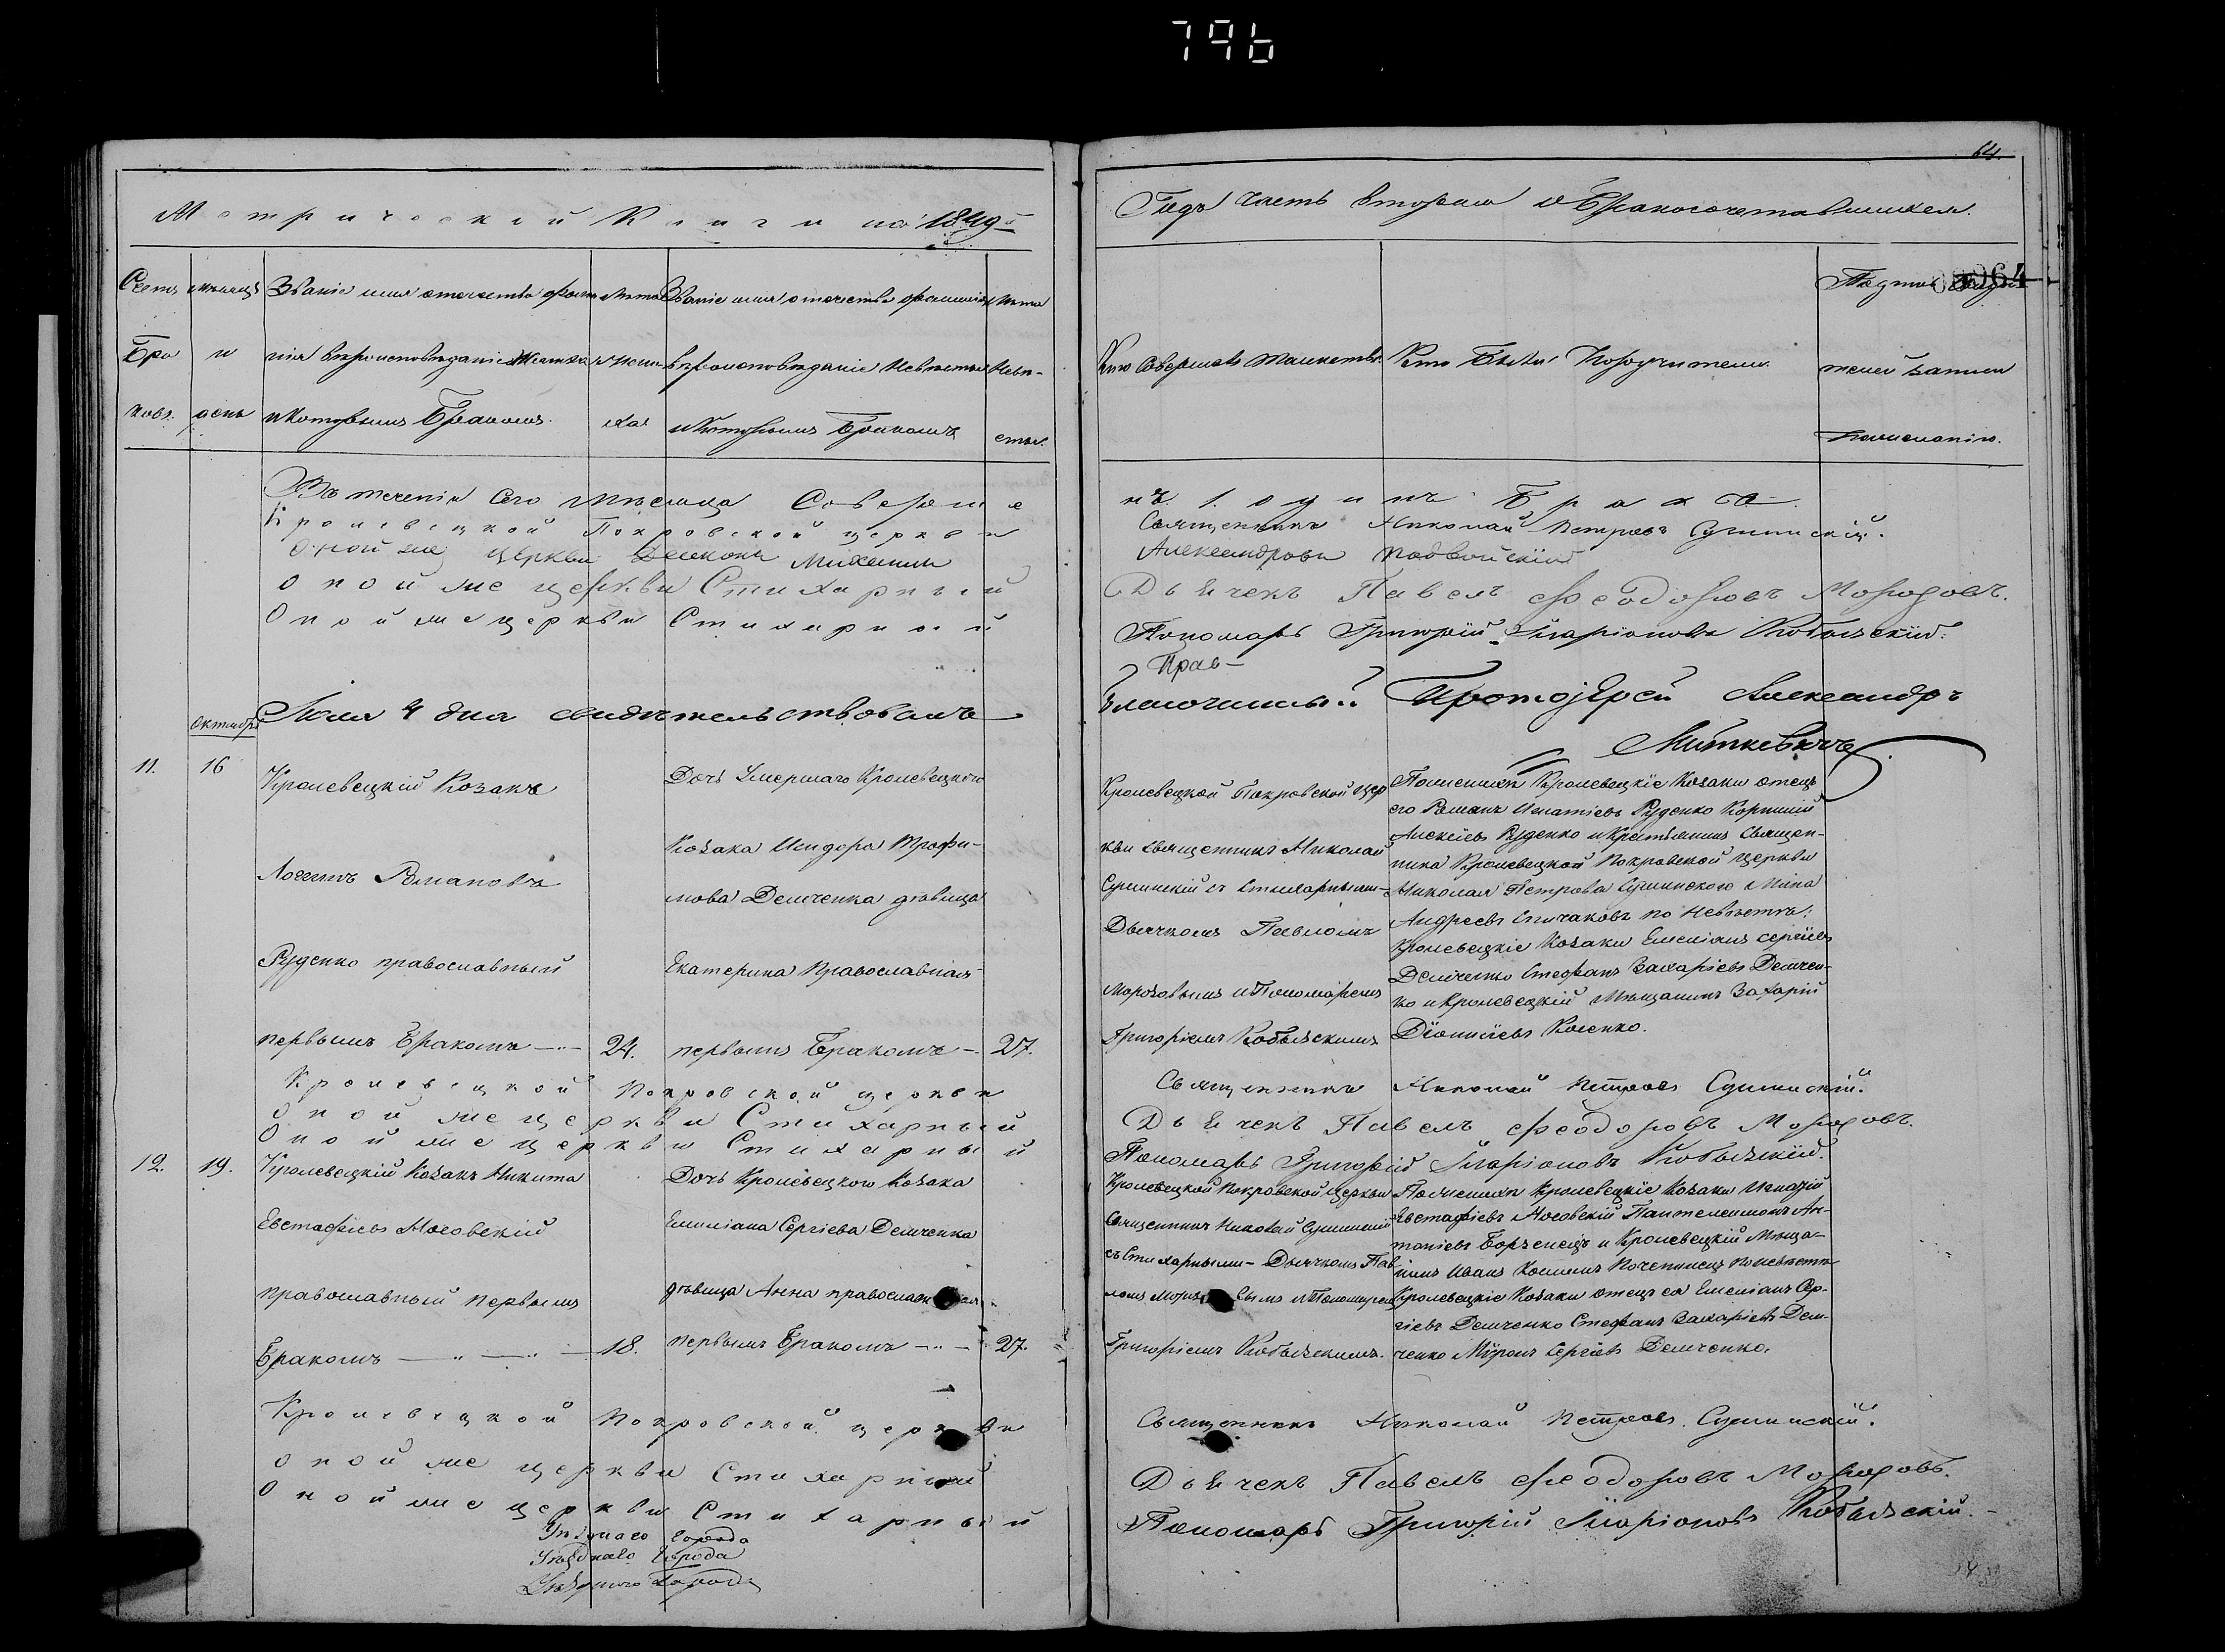 796
Метрической Книги на 1849й
Счетъ
Бра
ковъ.
мѣсяцъ
и
день
Званіе имя отечество фами
лія вѣроисповѣданіе Жениха
и которымъ Бракомъ.
Лѣта
Жени
ха
Званіе имя отечество фамилія
вѣроисповѣданіе Невѣсты
и которымъ Бракомъ
Лѣта
Невѣ-
сты.
Въ теченіи Сего мѣсяца Соверше
Кролевецкой Покровской церкви
Оной же церкви Діаконъ Михаилъ
Оной же церкви Стихарный
Оной же церкви Стихарный
Іюля 4 дня свидѣтельствовалъ
Октябрь
11.
16
Кролевецкій Козакъ
Логгинъ Романовъ
Руденко православный
первымъ Бракомъ
24.
Дочь Умершаго Кролевецкого
Козака Исидора Трофи-
мова Демченка дѣвица
Екатерина Православная
первымъ Бракомъ
27.
Кролевецкой Покровской церкви
Оной же церкви Стихарный
Оной же церкви Стихарный
12.
19.
Кролевецкій Козакъ Никита
Евстафіевъ Мосовскій
православный первымъ
Бракомъ
18.
Дочь Кролевецкого Козака
Емиліана Сергіева Демченка
дѣвица Анна православная
первымъ Бракомъ
27.
Кролевецкой Покровской церкви
Оной же церкви Стихарный
Оной же церкви Стихарный
Уѣзднаго Города
Уѣзднаго Города
Уѣзднаго Города
64.
Годъ Часть вторая о Бракосочетавшихся.
064
Кто Совершалъ Таинство.
Кто Были Поручители
Подпись Свидѣ
телей записи
по желанію.
нъ 1. одинъ Бракъ.
Священникъ Николай Петровъ Сушинскій.
Александровъ Подвойскій
Дьячекъ Павелъ Феодоровъ Морозовъ.
Пономарь Григорій Иларіоновъ Кобызскій.
Прав-
Благочиный Протоіерей Александръ
Миткевичъ
Кролевецкой Покровской цер
кви священникъ Николай
Сушинскій съ стихарными
Дьячкомъ Павломъ
Морозовымъ и Пономаремъ
Григоріемъ Кобызскимъ
По женихѣ Кролевецкіе Козаки отецъ
его Романъ Игнатіевъ Руденко Корнилій
Алексѣевъ Руденко и Крестьянинъ Священ-
ника Кролевецкой Покровской церкви
Николая Петрова Сушинского Мина
Андреевъ Спичаковъ по Невѣстѣ:
Кролевецкіе Козаки Емеліанъ Сергіевъ
Демченко Стефанъ Захаріевъ Демчен-
ко и Кролевецкій Мѣщанинъ Захарій
Діонисіевъ Косенко.
Священникъ Николай Петровъ Сушинскій.
Дьячекъ Павелъ Феодоровъ Морозовъ.
Пономарь Григорій Иларіоновъ Кобызскій.
Кролевецкой Покровской церкви
Священникъ Николай Сушинскій
съ Стихарными Дьячкомъ Пав
ломъ Морозовымъ и Пономаремъ
Григоріемъ Кобызскимъ.
По женихѣ Кролевецкіе Козаки Игнатій
Евстафіевъ Мосовскій Пантелеимонъ Ан-
тоніевъ Борзенецъ и Кролевецкій Мѣща-
нинъ Иванъ Козминъ Почепинецъ по невѣстѣ
Кролевецкіе Козаки отецъ ея Емеліанъ Сер-
гіевъ Демченко Стефанъ Захаріевъ Дем-
ченко Миронъ Сергіевъ Демченко.
Священникъ Николай Петровъ Сушинскій.
Дьячекъ Павелъ Феодоровъ Морозовъ.
Пономарь Григорій Иларіоновъ Кобызскій.